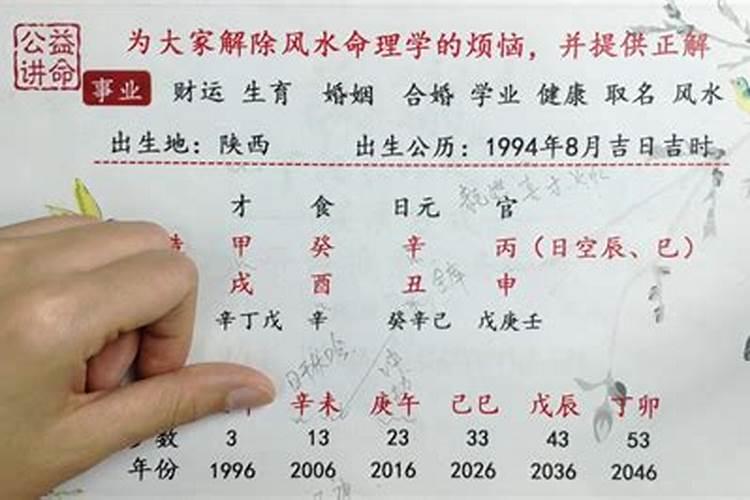 公益
讲命
为大家解除风水命理学的烦恼，并提供正解
事业 财运 生育 婚姻 合婚 学业 健康 取名 风水
出生地：陕西 出生公历：1994年8月吉日吉时
才 食 日元 官
甲 癸 辛 丙（日空辰、巳）
戌 酉 丑 申
辛丁戊 辛 癸辛己 戊庚壬
辛未 庚午 己巳 戊辰 丁卯
数 3 13 23 33 43 53
年份 1996 2006 2016 2026 2036 2046